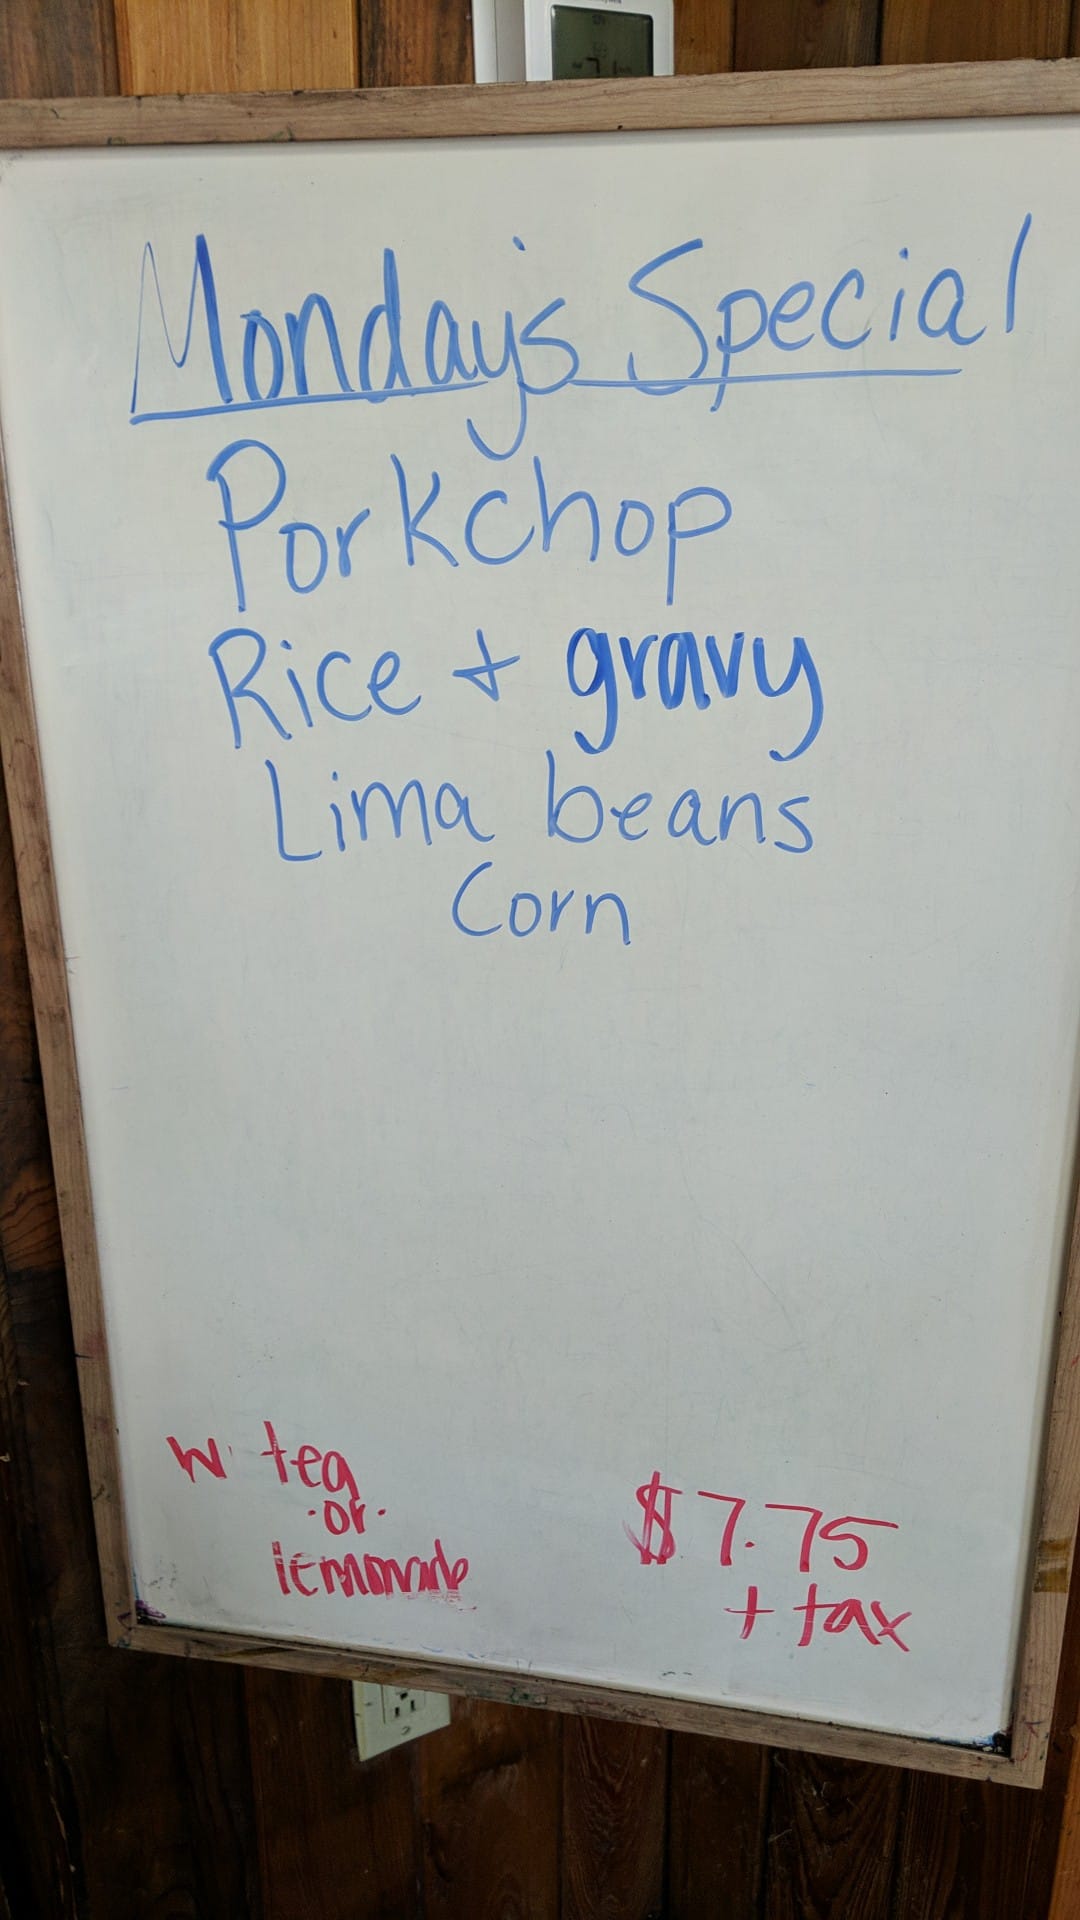 Monday's Special
Porkchop
Rice + gravy
Lima beans
Corn
w/ tea
·or·
lemonade
$7.75
+ tax